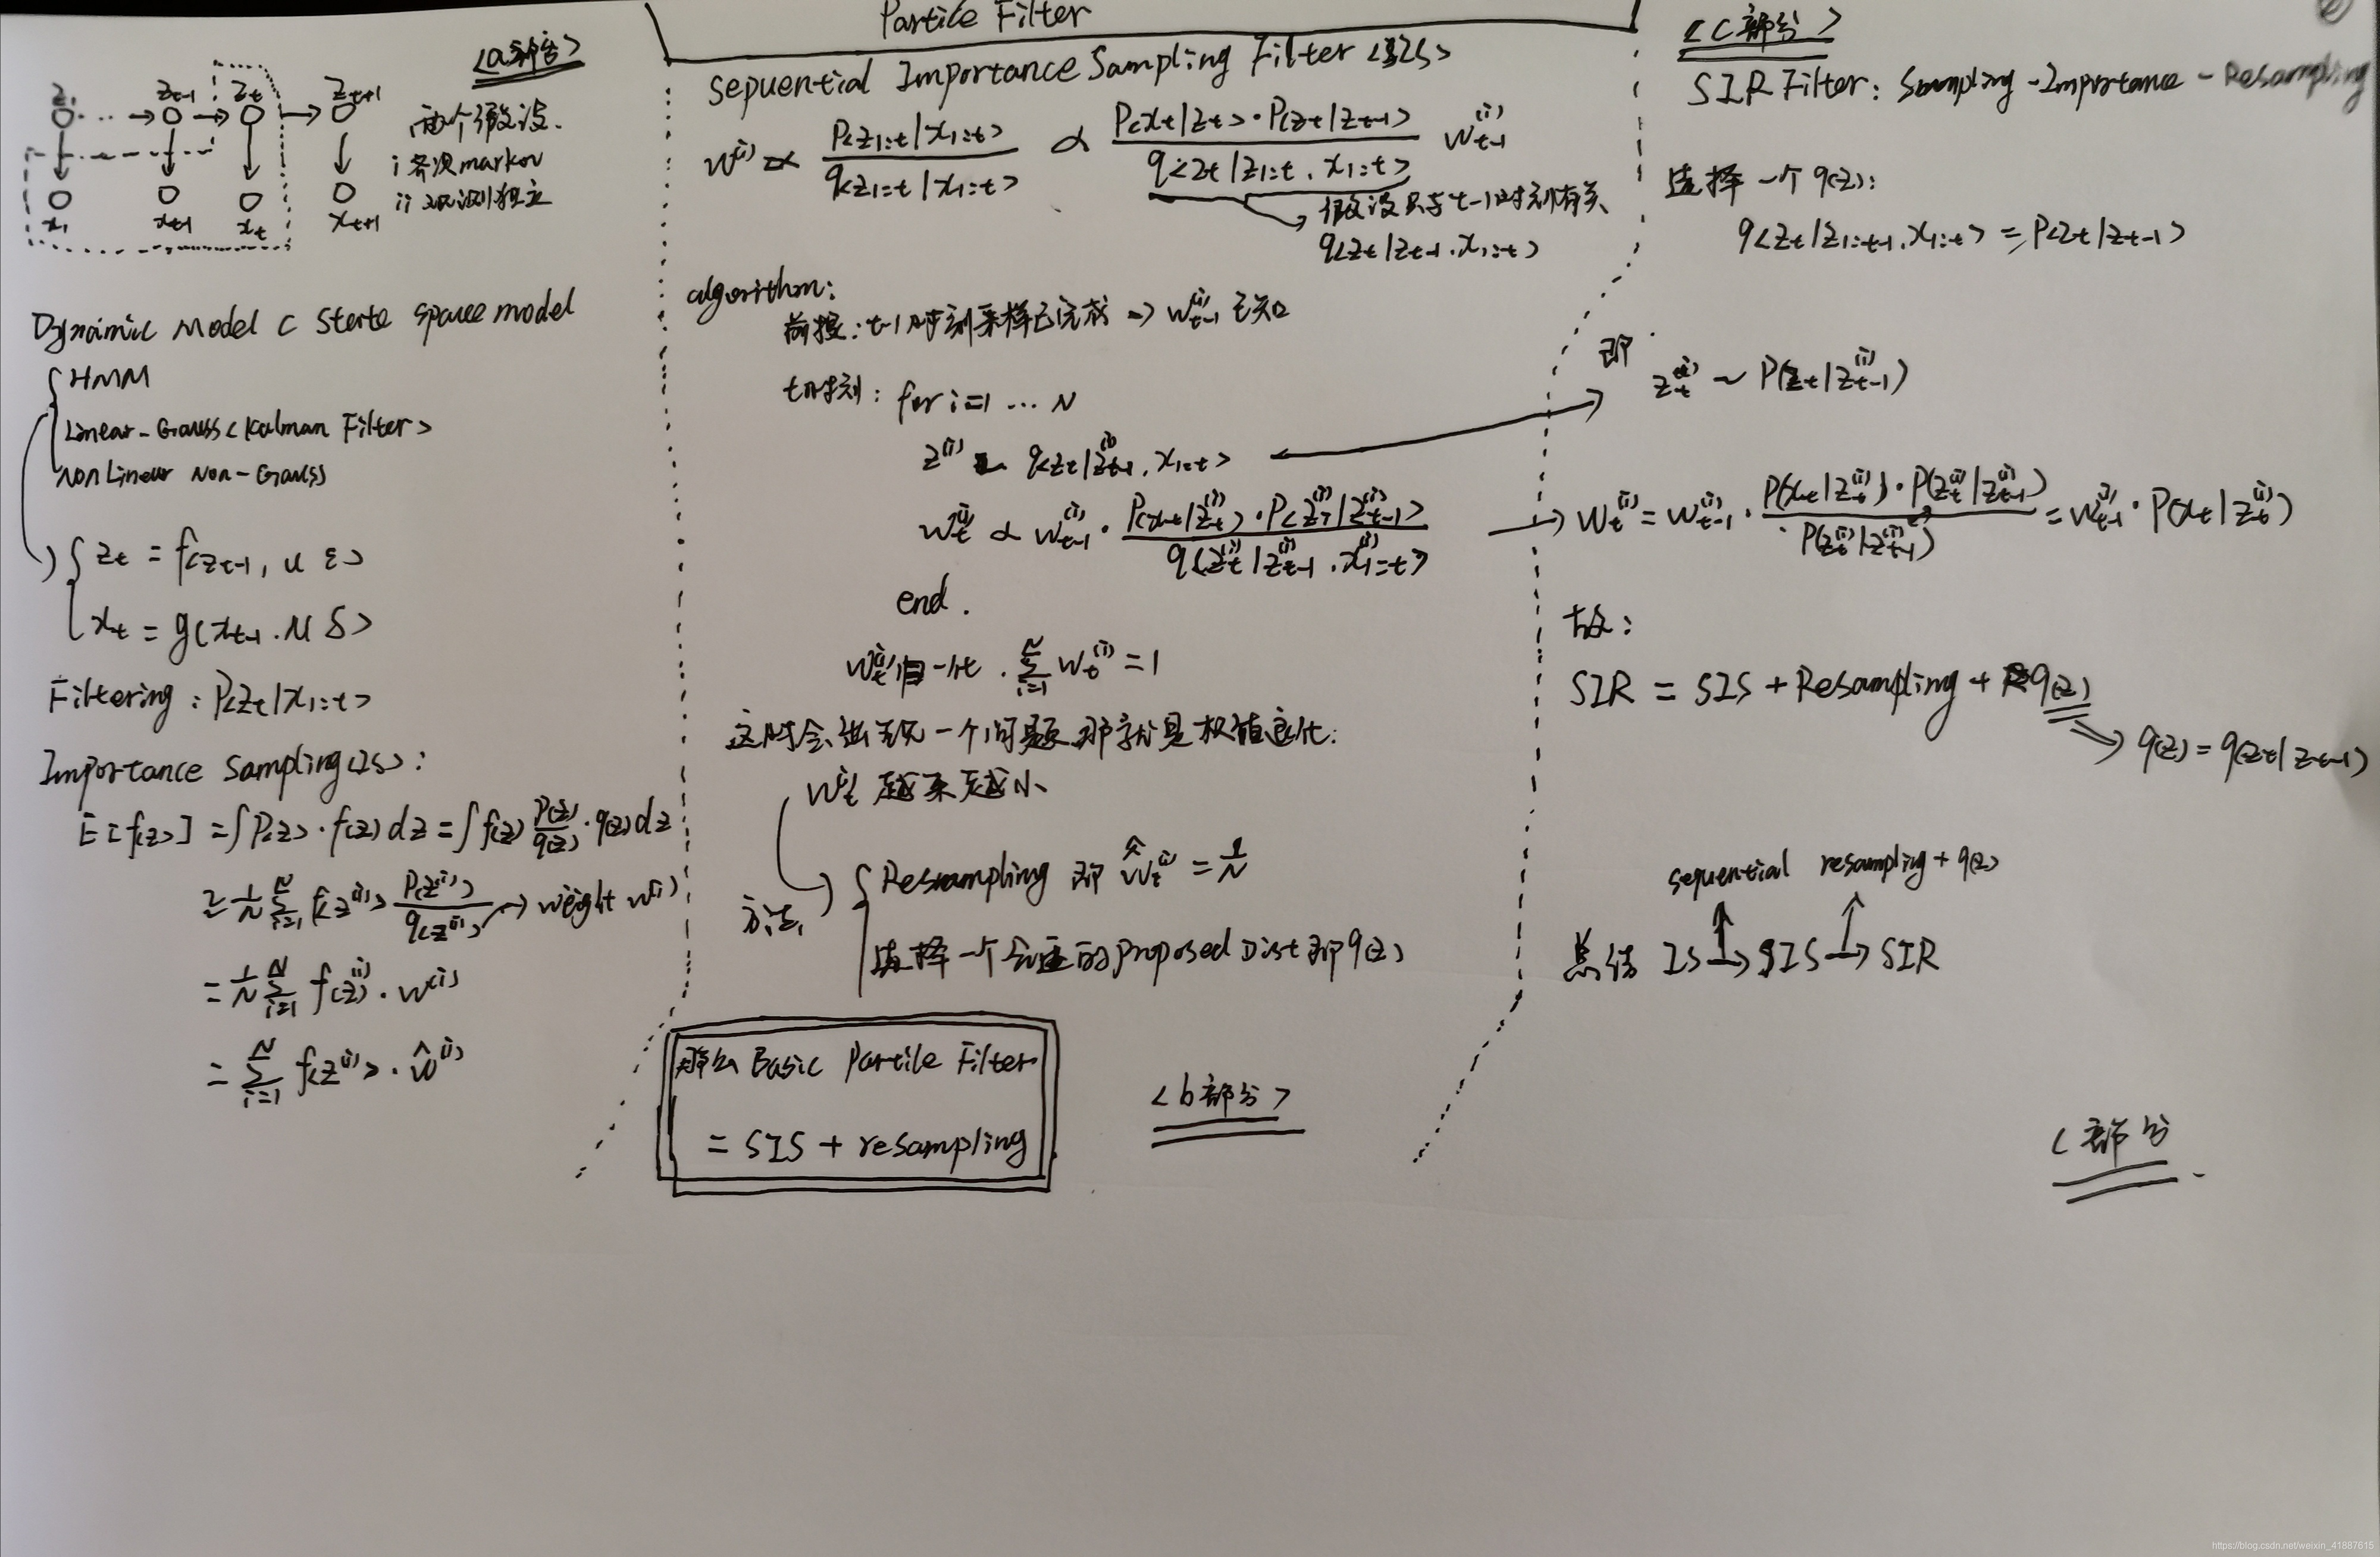 Partile Filter
<a部分>
z₁ z_{t-1} z_t z_{t+1}
... → → →
x₁ x_{t-1} x_t x_{t+1}
两个假设.
i 齐次markov
ii 观测独立
Dynamic Model C State space model
{ HMM
Linear-Gauss<Kalman Filter>
Non Linear Non-Gauss
{ z_t = f<z_{t-1}, u ε>
x_t = g<x_{t-1}. u δ>
Filtering : P<z_t|x_{1:t}>
Importance Sampling<IS> :
E[f<z>] = ∫P<z>·f(z)dz = ∫f(z) P(z)/q(z) · q(z)dz
≃ 1/N Σ_{i=1}^N f<z^{(i)}> P(z^{(i)})/q<z^{(i)}> → weight w^{(i)}
= 1/N Σ_{i=1}^N f(z^{(i)}) · w^{(i)}
= Σ_{i=1}^N f<z^{(i)}> · ŵ^{(i)}
Sepuential Importance Sampling Filter <SIS>
w^{(i)} ∝ P<z_{1:t}|x_{1:t}>/q<z_{1:t}|x_{1:t}> ∝ P<x_t|z_t>·P<z_t|z_{t-1}>/q<z_t|z_{1:t}, x_{1:t}> w_{t-1}^{(i)}
假设只与t-1时刻有关
q<z_t|z_{t-1}.x_{1:t}>
algorithm:
前提: t-1时刻采样已完成 → w_{t-1}^{(i)} 已知
t时刻: for i=1 ... N
z^{(i)} ~ q<z_t|z_{t-1}^{(i)}, x_{1:t}>
w_t^{(i)} ∝ w_{t-1}^{(i)} · P<x_t|z_t^{(i)})·P<z_t^{(i)}|z_{t-1}^{(i)}>/q<z_t^{(i)}|z_{t-1}^{(i)}, x_{1:t}^{(i)}>
end .
w_t^{(i)}归一化 . Σ_{i=1}^N w_t^{(i)} = 1
这时会出现一个问题,那就是权值退化:
w_t^{(i)} 越来越小
方法 { Resampling 即 ŵ_t^{(i)} = 1/N
选择一个合适的proposed Dist 即q(z)
那么 Basic Partile Filter
= SIS + resampling
<b部分>
<C部分>
SIR Filter: Sampling-Importance-Resampling
选择一个 q(z):
q<z_t|z_{1:t-1}, x_{1:t}> = P<z_t|z_{t-1}>
即 z_t^{(i)} ~ P(z_t|z_{t-1}^{(i)})
→ w_t^{(i)} = w_{t-1}^{(i)} · P(x_t|z_t^{(i)})·P(z_t^{(i)}|z_{t-1}^{(i)})/P(z_t^{(i)}|z_{t-1}^{(i)}) = w_{t-1}^{(i)} · P(x_t|z_t^{(i)})
故:
SIR = SIS + Resampling + q(z)
q(z) = q(z_t|z_{t-1})
sequential resampling + q(z)
总结 IS → SIS → SIR
C 部分
https://blog.csdn.net/weixin_41887615